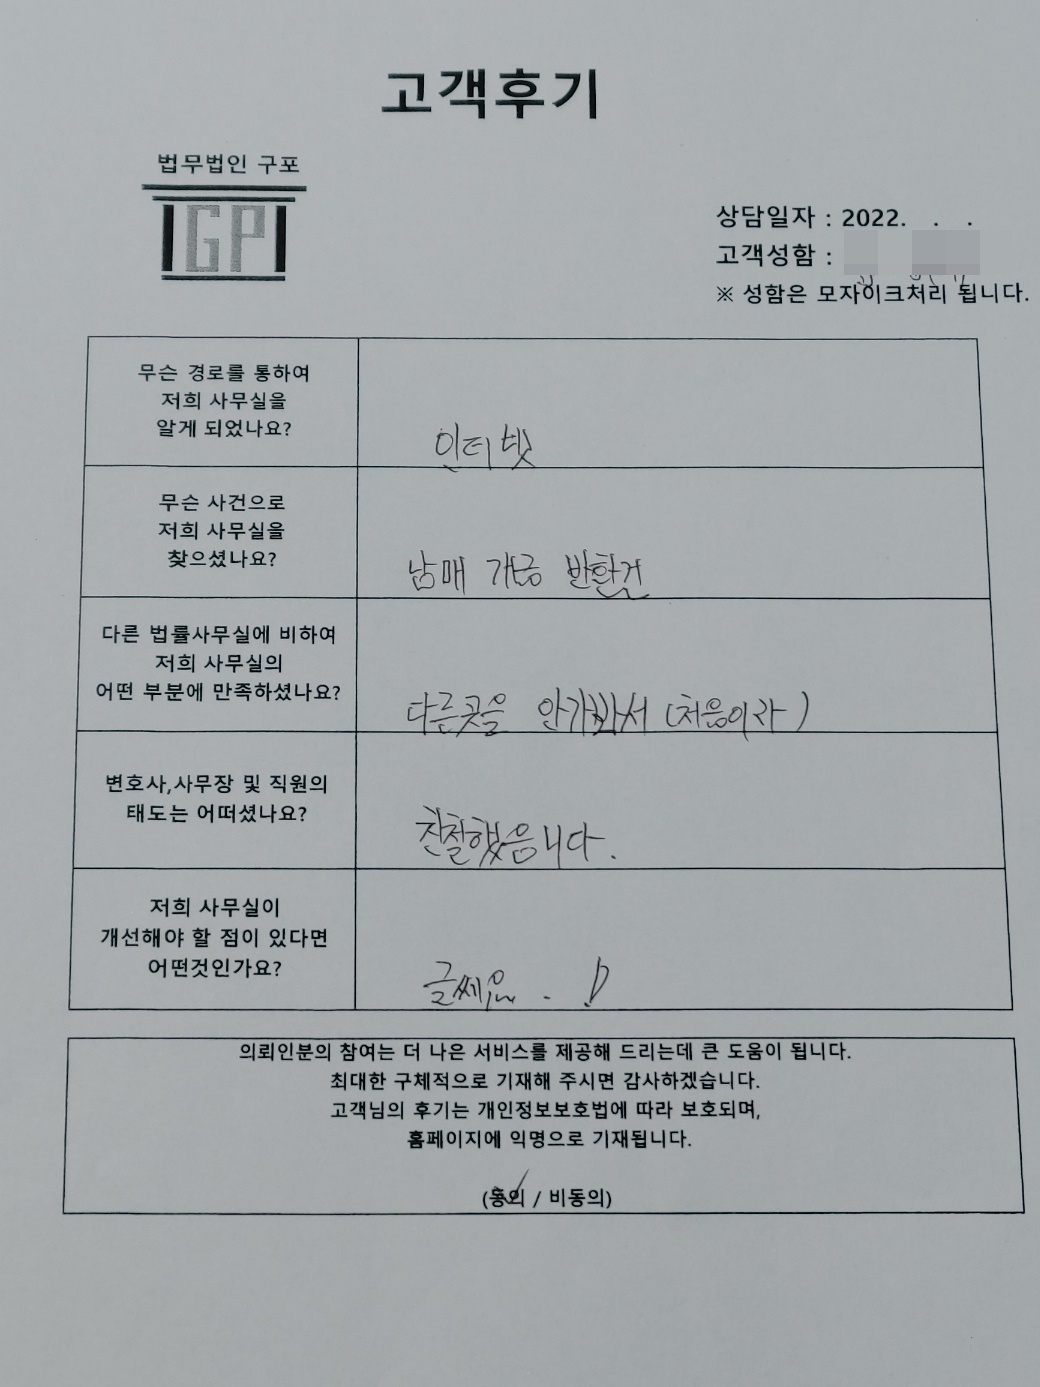 고객후기
법무법인 구포
GP
상담일자 : 2022. . .
고객성함 :
※ 성함은 모자이크처리 됩니다.
무슨 경로를 통하여
저희 사무실을
알게 되었나요?
인터넷
무슨 사건으로
저희 사무실을
찾으셨나요?
남매 개금 반환건
다른 법률사무실에 비하여
저희 사무실의
어떤 부분에 만족하셨나요?
다른곳을 안가봐서 (처음이라)
변호사,사무장 및 직원의
태도는 어떠셨나요?
친절했음니다.
저희 사무실이
개선해야 할 점이 있다면
어떤것인가요?
글쎄요. . !
의뢰인분의 참여는 더 나은 서비스를 제공해 드리는데 큰 도움이 됩니다.
최대한 구체적으로 기재해 주시면 감사하겠습니다.
고객님의 후기는 개인정보보호법에 따라 보호되며,
홈페이지에 익명으로 기재됩니다.
(동의 / 비동의)